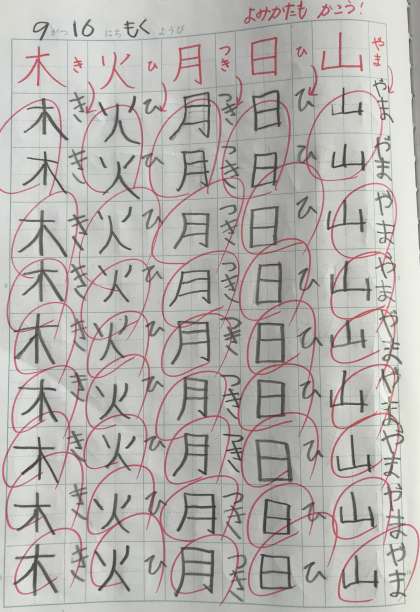 9がつ16にちもくようび
よみかたも かこう！
木 き 火 ひ 月 つき 日 ひ 山 やま
木 き 火 ひ 月 つき 日 ひ 山 やま
木 き 火 ひ 月 つき 日 ひ 山 やま
木 き 火 ひ 月 つき 日 ひ 山 やま
木 き 火 ひ 月 つき 日 ひ 山 やま
木 き 火 ひ 月 つき 日 ひ 山 やま
木 き 火 ひ 月 つき 日 ひ 山 やま
木 き 火 ひ 月 つき 日 ひ 山 やま
木 き 火 ひ 月 つき 日 ひ 山 やま
木 き 火 ひ 月 つき 日 ひ 山 やま